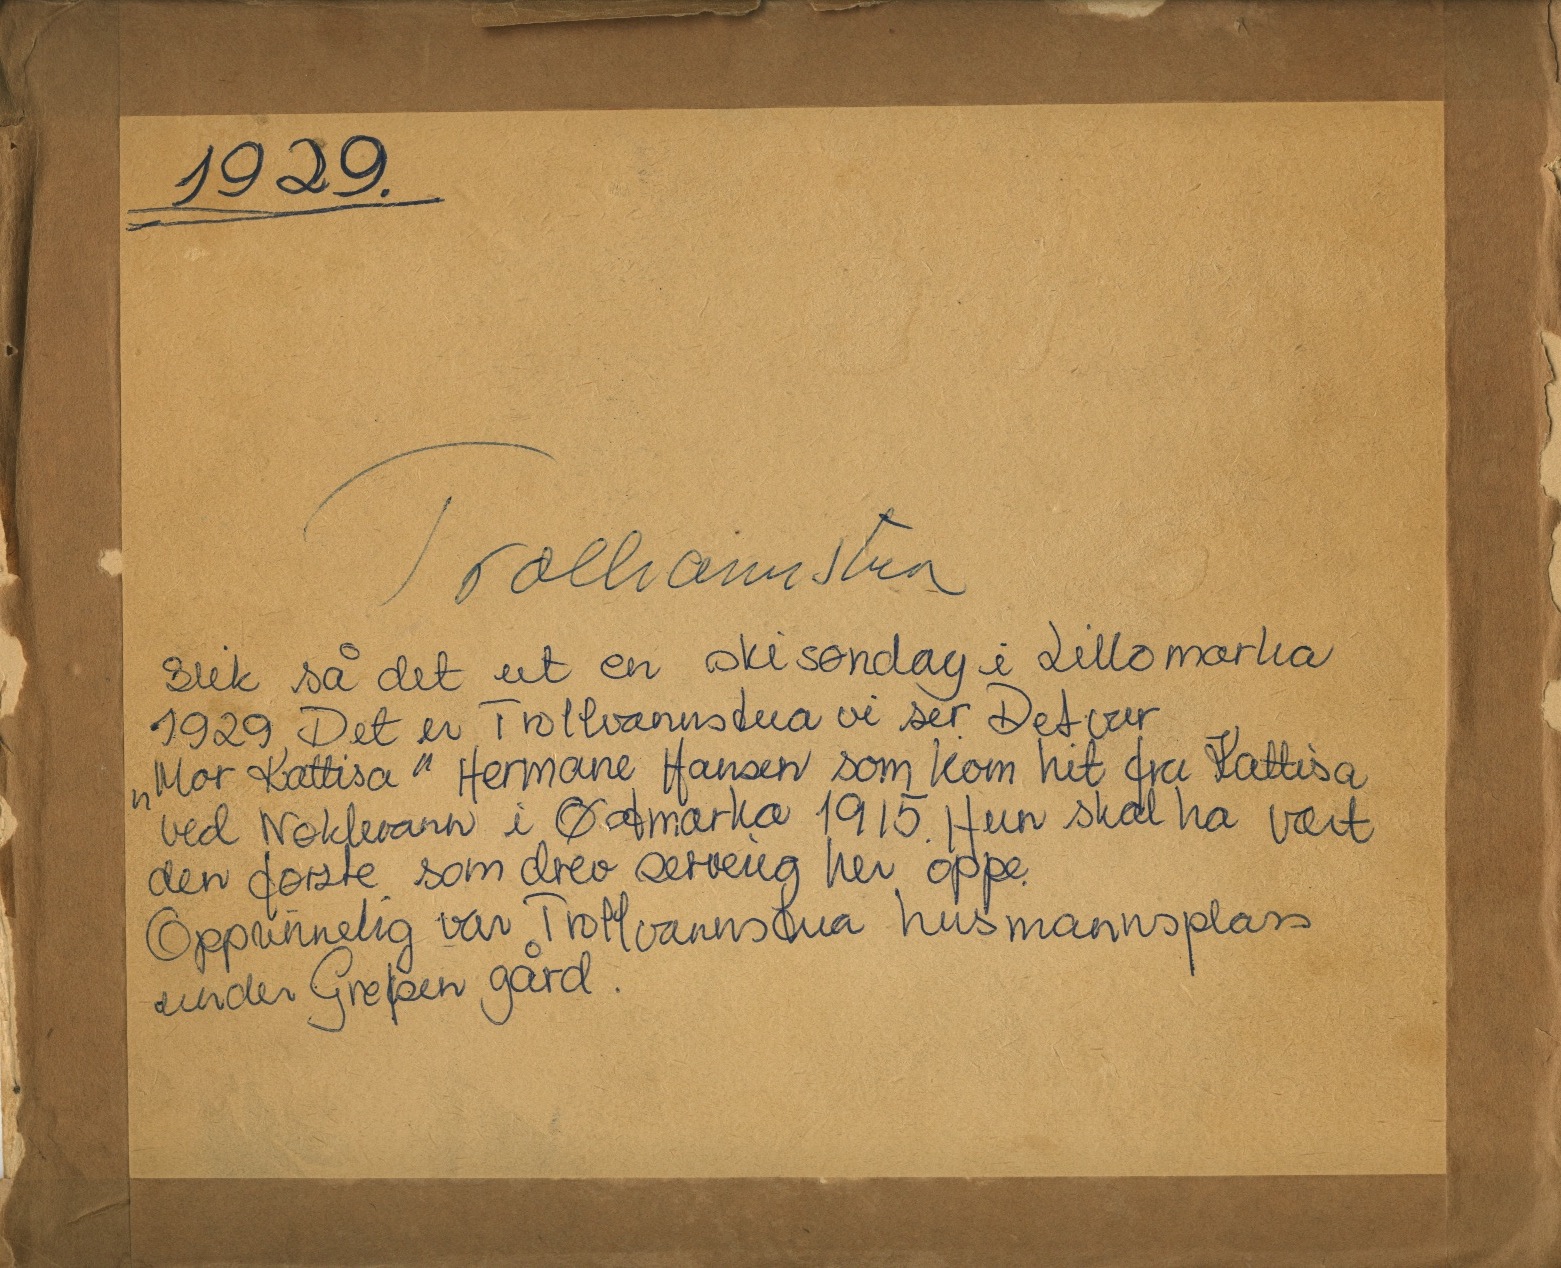 1929.
Trollvannstua
Slik så det ut en skisøndag i Lillomarka
1929. Det er Trollvannstua vi ser. Det var
„Mor Kattisa" Hermane Hansen som kom hit fra Kattisa
ved Nøklevann i Østmarka 1915. Hun skal ha vært
den første som drev servering her oppe.
Opprinnelig var Trollvannstua husmannsplass
under Grefsen gård.